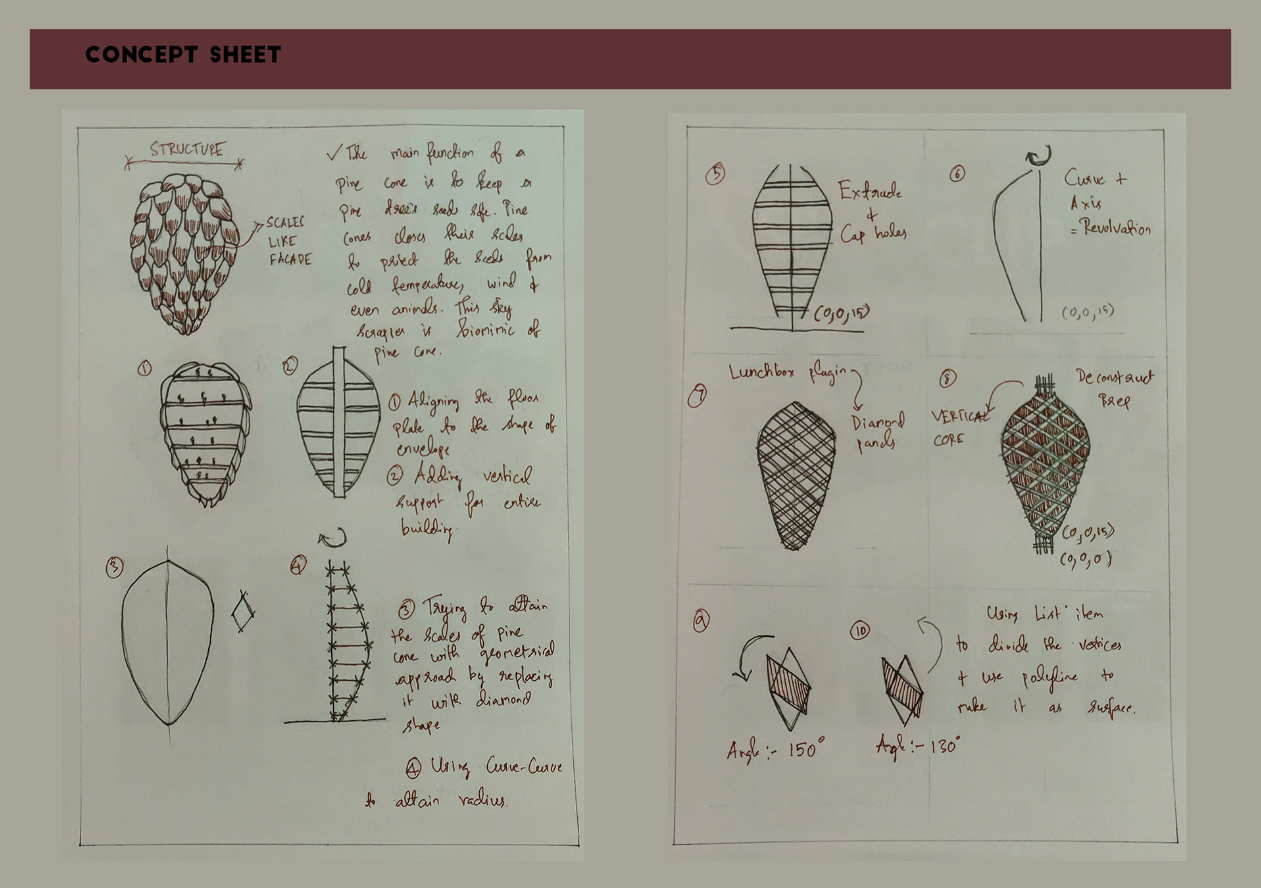 CONCEPT SHEET
STRUCTURE
SCALES
LIKE
FACADE
✓ The main function of a
pine cone is to keep a
pine tree's seeds safe. Pine
cones closes their scales
to protect the seeds from
cold temperature, wind &
even animals. This sky
scraper is biomimic of
pine cone.
①
②
① Aligning the floor
plate to the shape of
envelope
② Adding vertical
support for entire
building.
③
④
③ Trying to attain
the scales of pine
cone with geometrical
approach by replacing
it with diamond
shape
④ Using Curve-Curve
to attain radius.
⑤
Extrude
&
Cap holes
(0,0,15)
⑥
Curve +
Axis
= Revolvation
(0,0,15)
⑦
Lunchbox plugin
Diamond
panels
⑧
VERTICAL
CORE
Deconstruct
Brep
(0,0,15)
(0,0,0)
⑨
Angle:- 150°
⑩
Angle:- 130°
Using List item
to divide the vertices
& use polyline to
make it as surface.